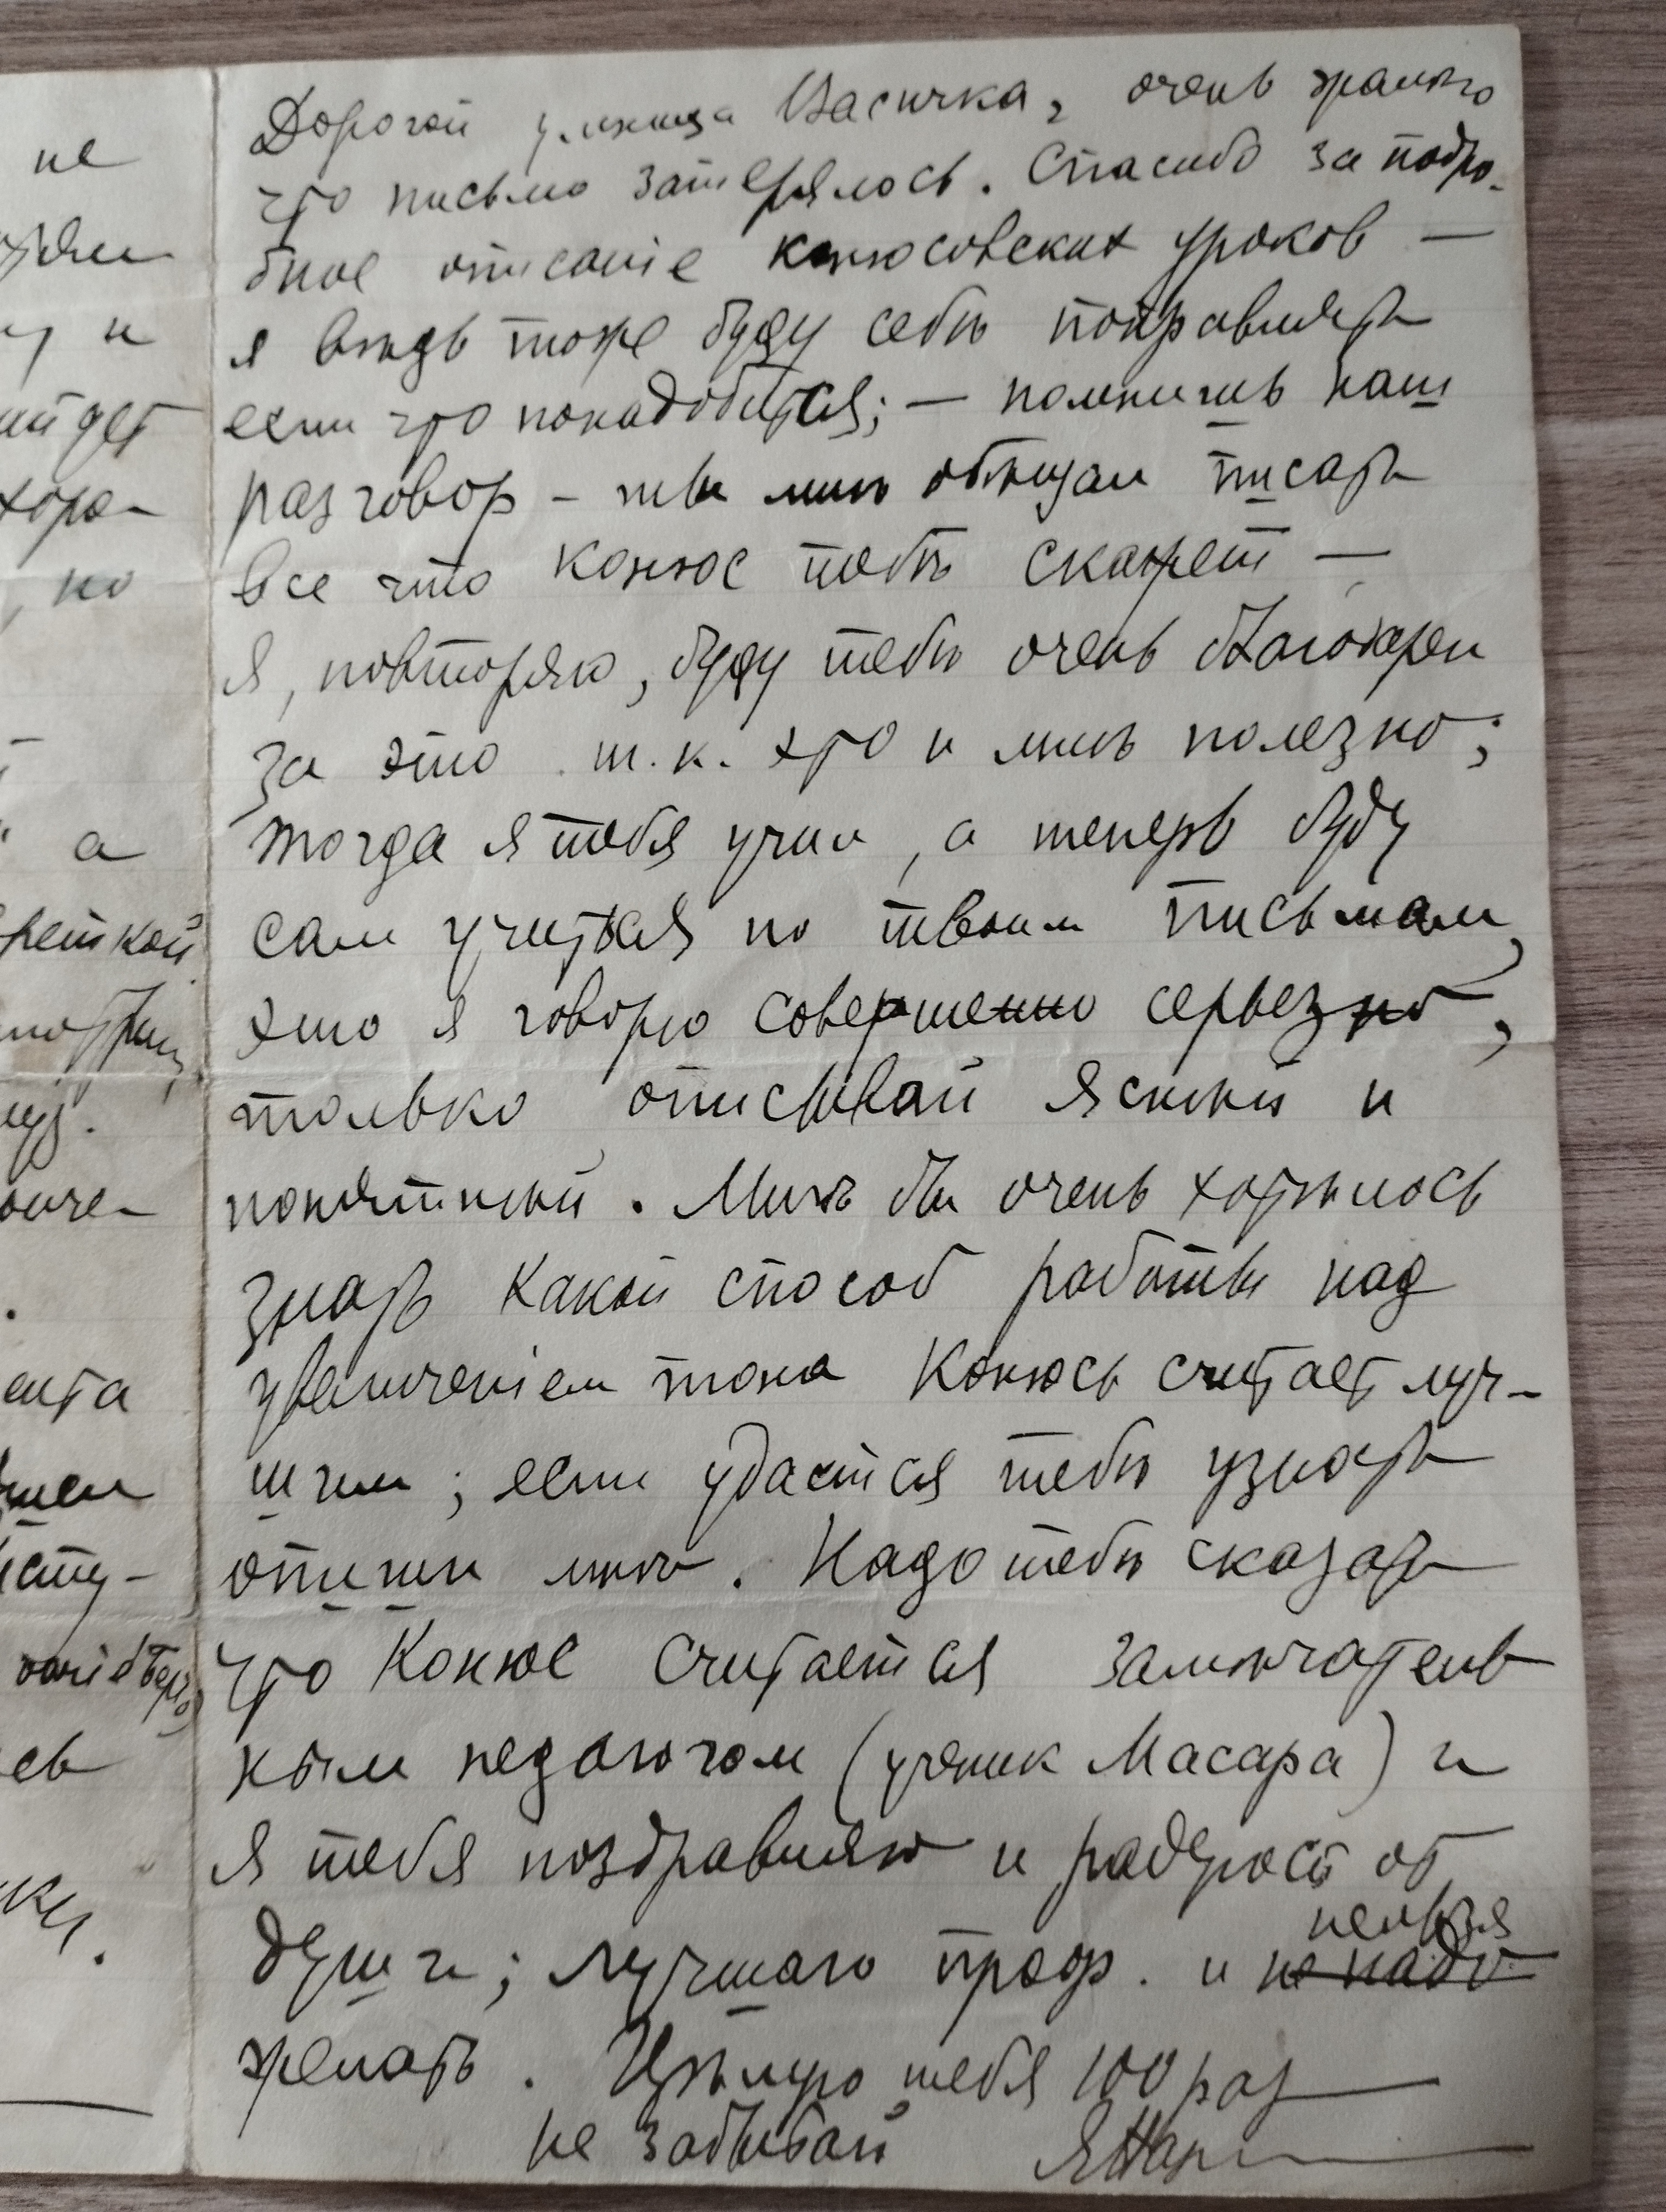 не
у и
йдет
хоро-
, но
а
реткой
муз.
онче-
.
ента
сту-
сь
ки.
Дорогой умница Васичка, очень жалко
что письмо затерялось. Спасибо за подро-
бное описаніе конюсовских уроков —
я вѣдь тоже буду себя поправлять
если что понадобится; — помнишь наш
разговор – ты мнѣ обѣщал писать
все что Конюс тебѣ скажет —
Я, повторяю, буду тебѣ очень благодарен
за это т.к. это и мнѣ полезно;
тогда я тебя учил, а теперь буду
сам учиться по твоим письмам,
это я говорю совершенно серьезно,
только описывай яснѣй и
понятнѣй. Мнѣ бы очень хотѣлось
знать какой способ работы над
увеличеніем тона Конюсъ считает луч-
шим; если удастся тебѣ узнать
опиши мнѣ. Надо тебѣ сказать
что Конюс считается замѣчатель
ным педагогом (ученик Масара) и
я тебя поздравляю и радуюсь от
нельзя
души; лучшаго проф. и не надо
желать. Цѣлую тебя 100 раз
не забывай